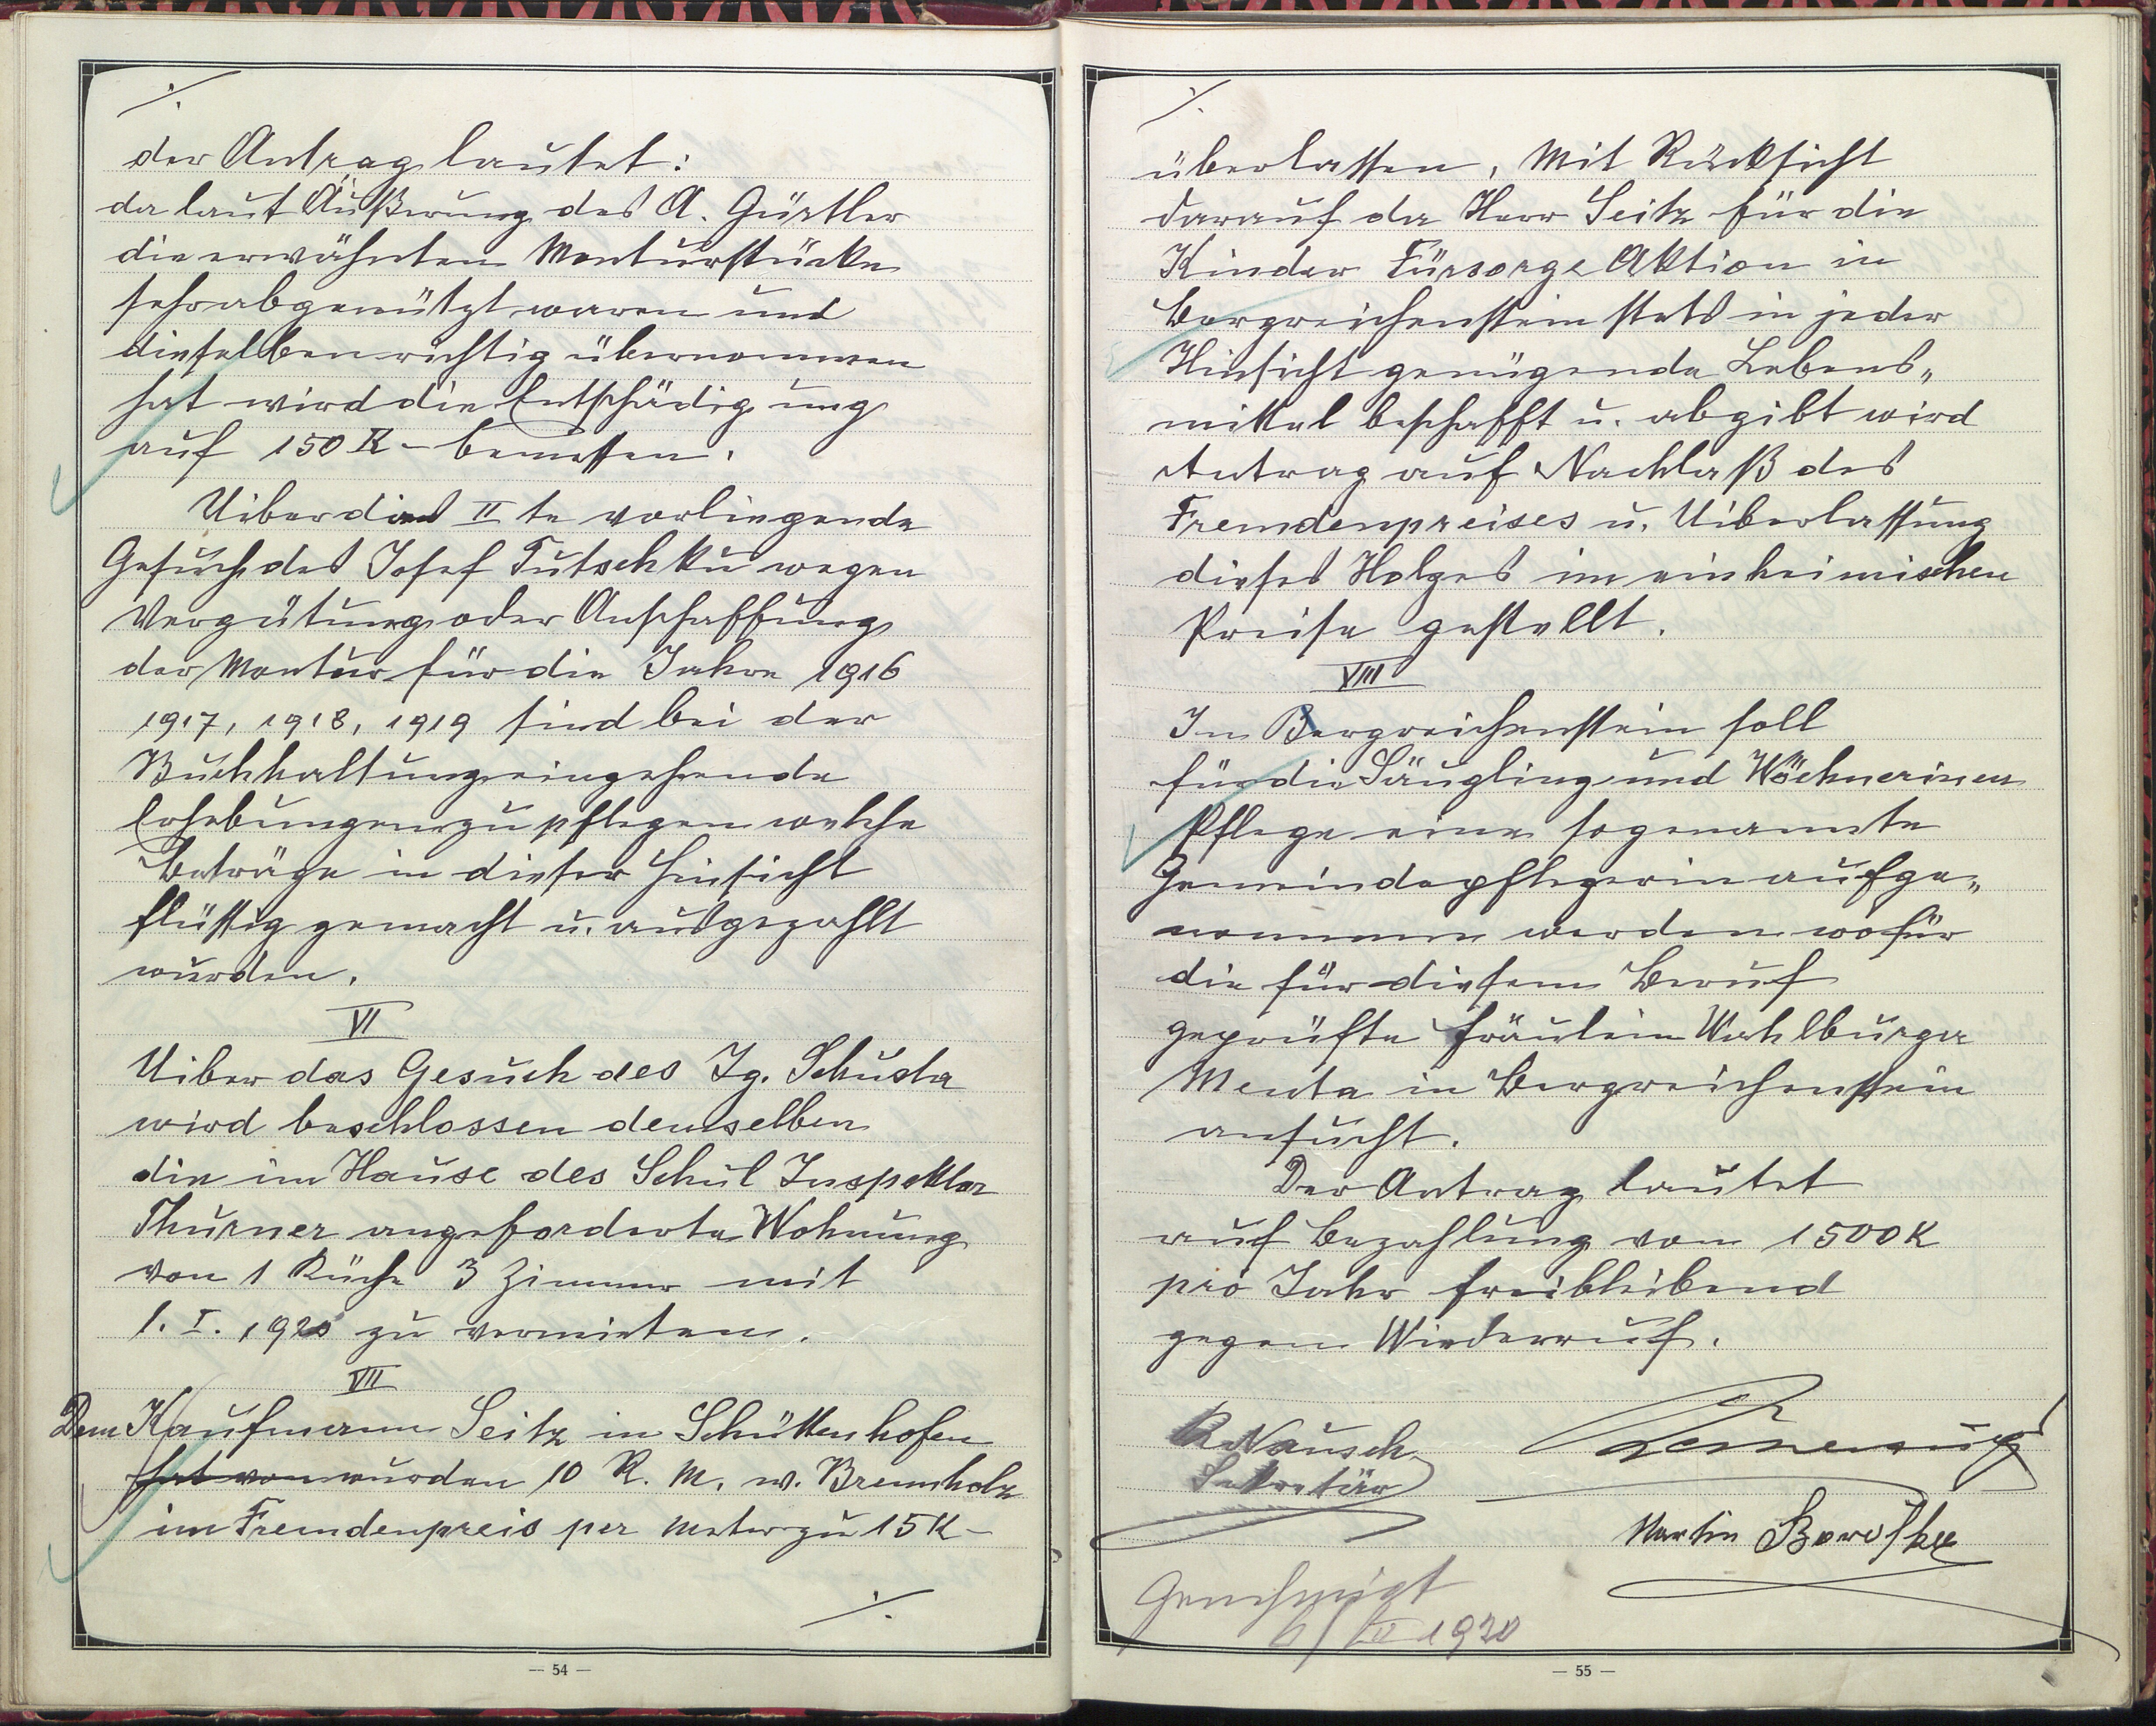 ./.
der Antrag lautet:
da laut Äußerung des A. Gürtler
die erwähnten Monturstücke
sehr abgenützt waren und
dieselben richtig übernommen
hat wird die Entschädigung
auf 150 K - bemessen.
Uiber das II te vorliegende
Gesuch des Josef Tutschku wegen
Vergütung oder Anschaffung
der Montur für die Jahre 1916
1917, 1918, 1919 sind bei der
Buchhaltung eingehende
Erhebungen zu pflegen welche
Beträge in dieser Hinsicht
flüssig gemacht u. ausgezahlt
wurden.
VI
Uiber das Gesuch des Ig. Schusta
wird beschlossen demselben
die im Hause des Schul Inspektor
Thurner angeforderte Wohnung
von 1 Küche 3 Zimmer mit
1. I. 1920 zu vermieten.
VII
Dem Kaufmann Seitz in Schüttenhofen
hat von wurden 10 R. M. w. Brennholz
im Fremdenpreis per Meter zu 15 K -
./.
— 54 —
./.
überlassen, Mit Rücksicht
darauf da Herr Seitz für die
Kinder Fürsorge Aktion in
Bergreichenstein stets in jeder
Hinsicht genügende Lebens„
mittel beschafft u. abgibt wird
Antrag auf Nachlaß des
Fremdenpreises u. Uiberlassung
dieses Holzes im einheimischen
Preise gestellt.
VIII
In Bergreichenstein soll
für die Säugling und Wöchnerinen
Pflege eine sogenannte
Gemeindepflegerin aufge„
nommen werden wofür
die für diesem Beruf
geprüfte Fräulein Wohlburger
Menta in Bergreichenstein
ansucht.
Der Antrag lautet
auf Bezahlung von 1500 K
pro Jahr freibleibend
gegen Wiederruf.
Nausch
Sekretär
Martin
Genehmigt
1920
— 55 —